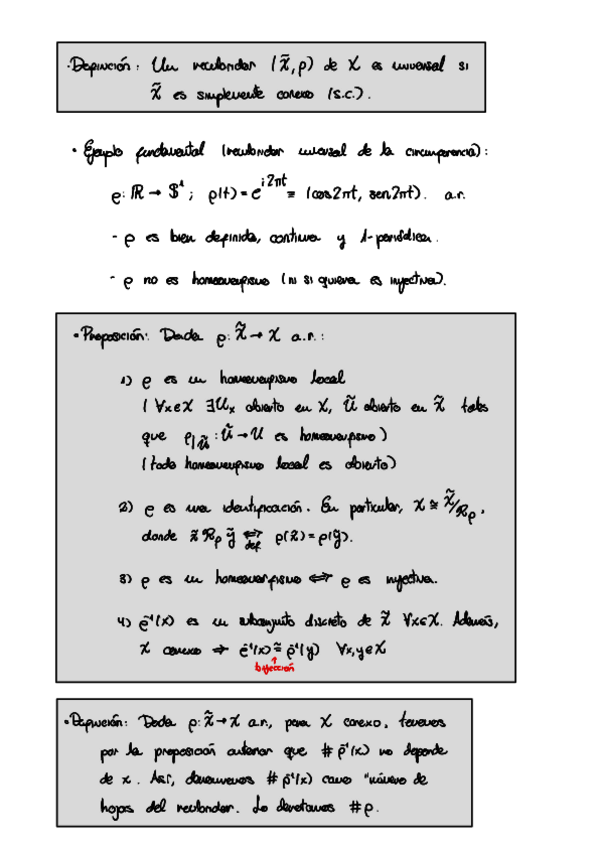 ·Definición: Un recubridor (X̃, ρ) de X es universal si
X̃ es simplemente conexo (s.c.).
• Ejemplo fundamental (recubridor universal de la circunferencia):
ρ: ℝ → 𝕊¹ ; ρ(t) = e^{i2πt} ≡ (cos2πt, sen2πt). a.r.
- ρ es bien definida, continua y 1-periódica.
- ρ no es homeomorfismo (ni si quiera es inyectiva).
• Proposición: Dada ρ: X̃ → X a.r.:
1) ρ es un homeomorfismo local
( ∀x∈X ∃Uₓ abierto en X, Ũ abierto en X̃ tales
que ρ|_Ũ : Ũ → U es homeomorfismo )
(todo homeomorfismo local es abierto)
2) ρ es una identificación. En particular, X ≅ X̃/R_ρ,
donde x̃ R_ρ ỹ ⟺ ρ(x̃) = ρ(ỹ).
def
3) ρ es un homeomorfismo ⟺ ρ es inyectiva.
4) ρ⁻¹(x) es un subconjunto discreto de X̃ ∀x∈X. Además,
X conexo ⇒ ρ⁻¹(x) ≅ ρ⁻¹(y) ∀x,y∈X
↑
bijección
• Definición: Dada ρ: X̃ → X a.r., para X conexo, tenemos
por la proposición anterior que # ρ⁻¹(x) no depende
de x. Así, denominamos # ρ⁻¹(x) como "número de
hojas del recubridor. Lo denotamos #ρ.